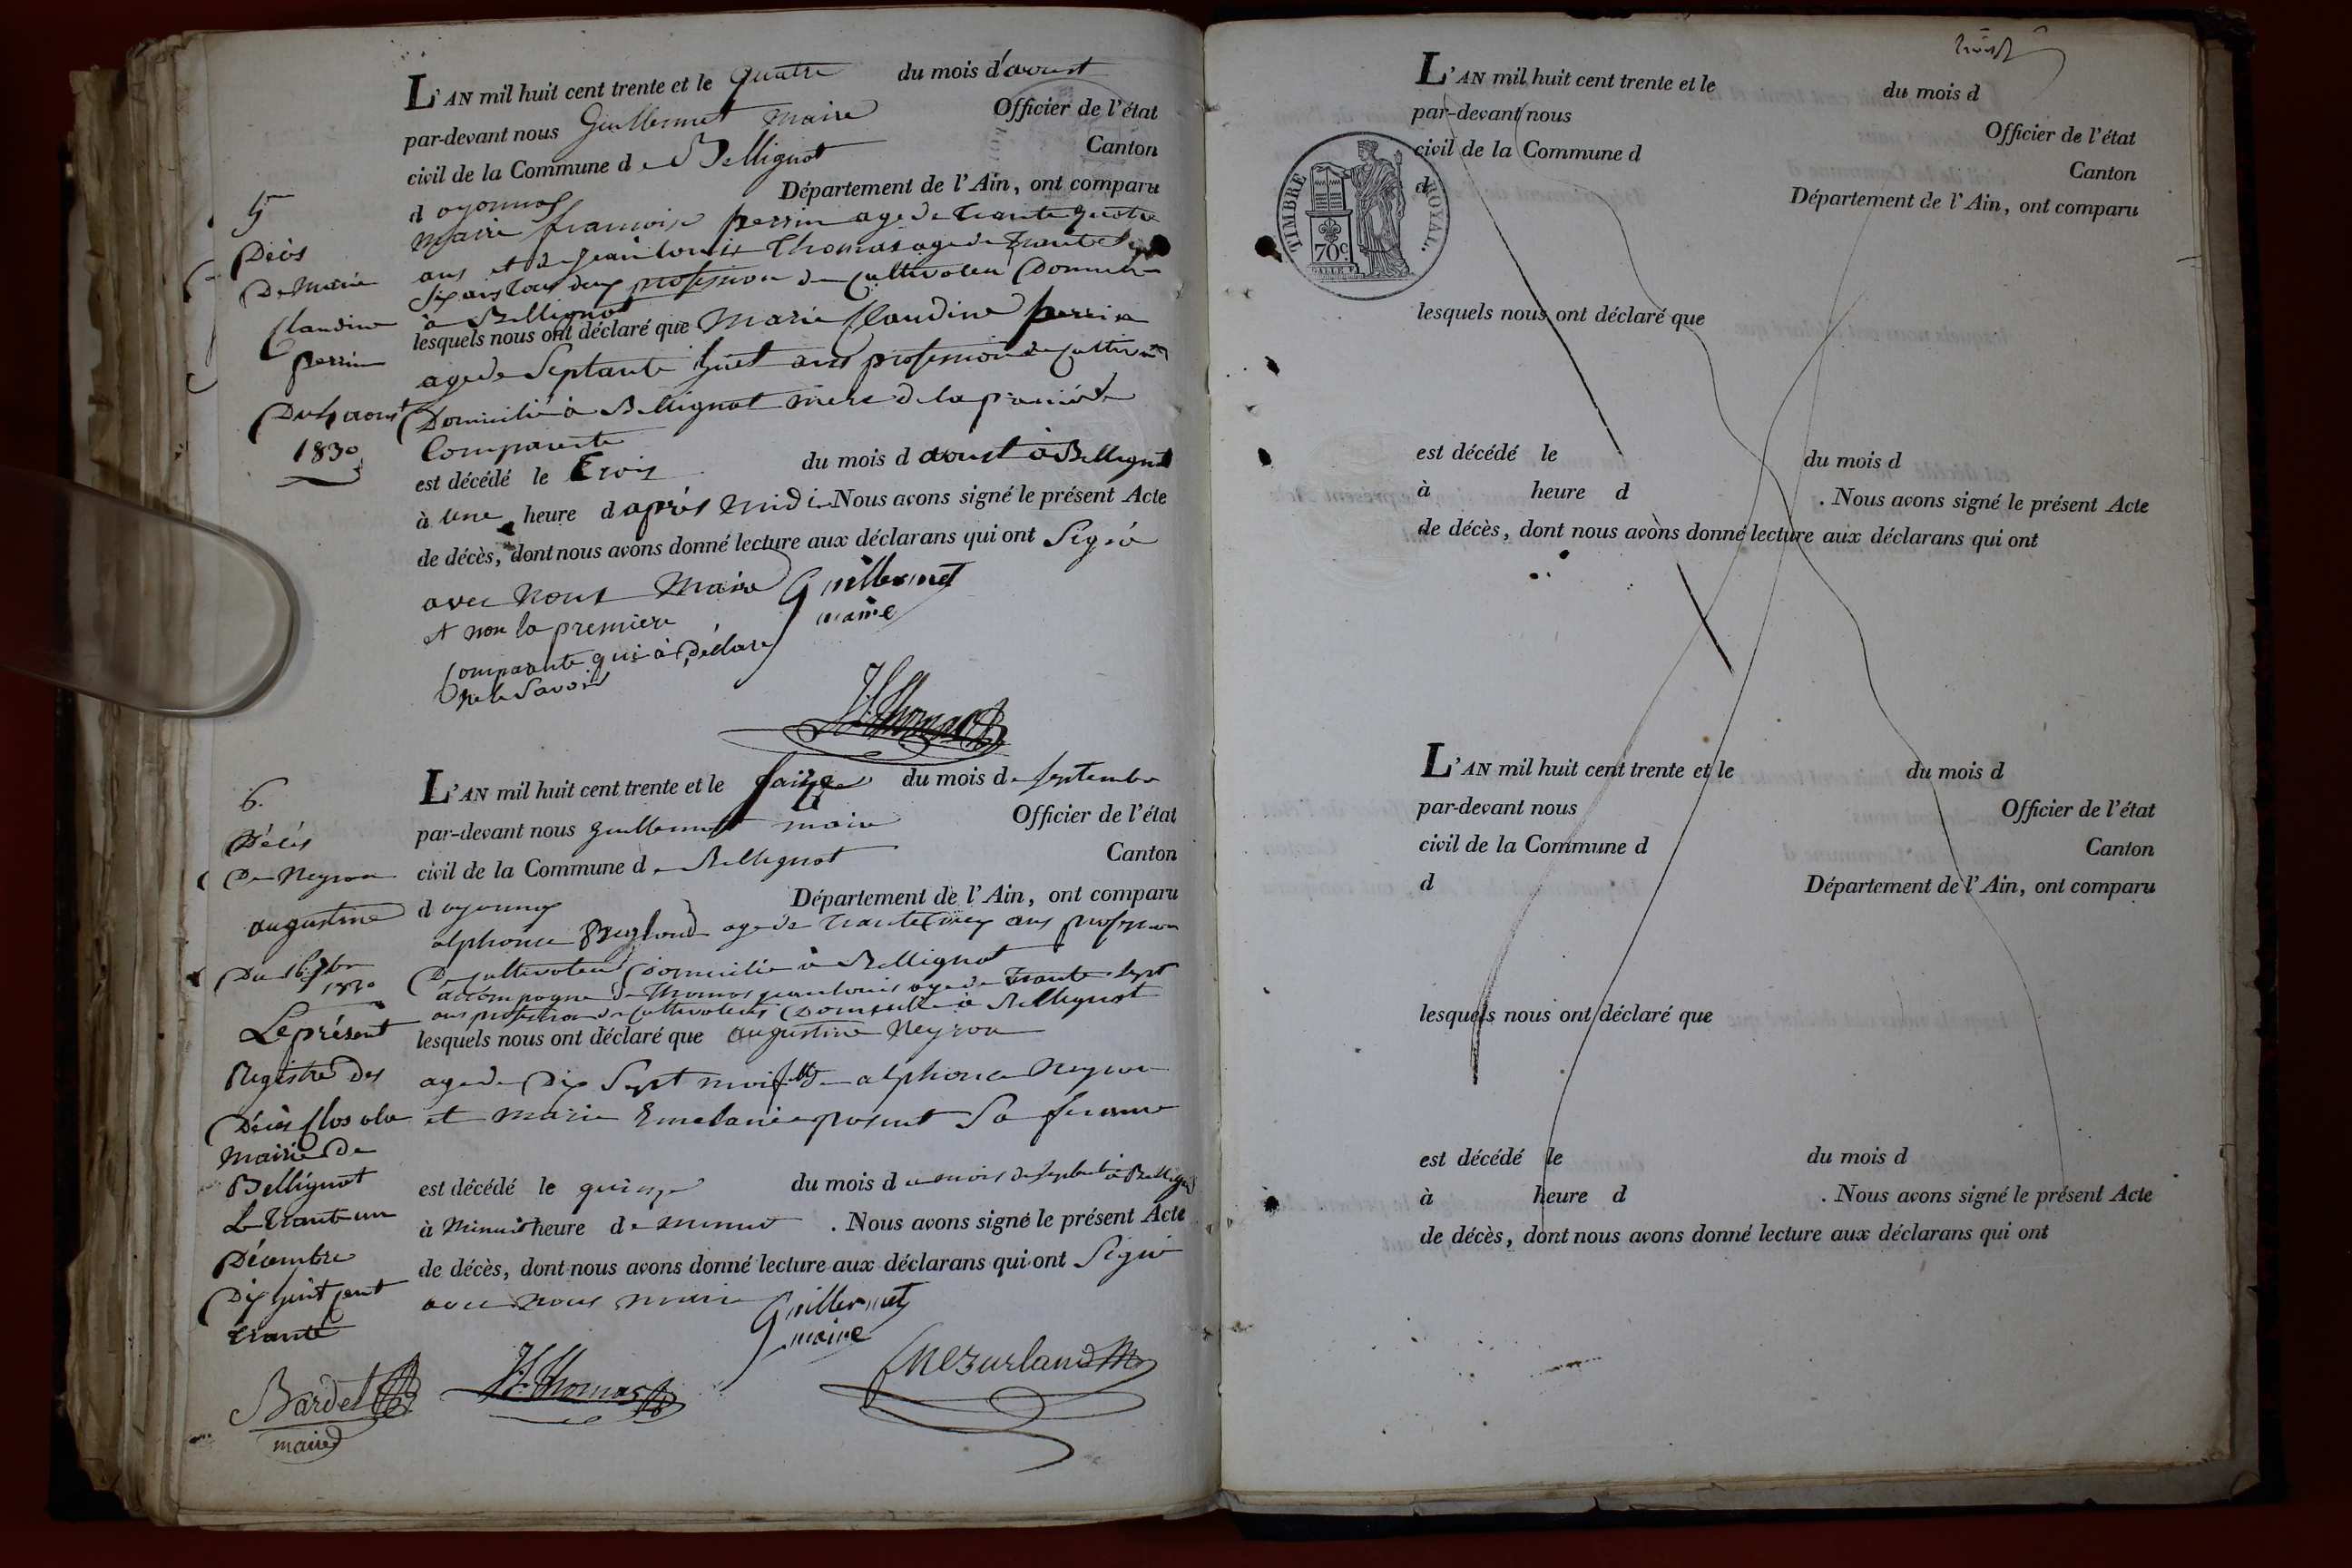 5
Décès
De Marie
Claudine
perrin
Du 4 aoust
1830
L'AN mil huit cent trente et le quatre du mois d'aoust
par-devant nous Guillermet maire Officier de l'état
civil de la Commune de Bellignat Canton
d oyonnax Département de l'Ain, ont comparu
marie francoise perrin age de trante quatre
ans et de jean louis Thomas age de trante
Six ans tous deux profession de Cultivateur Domicilie
à Bellignat
lesquels nous ont déclaré que Marie Claudine perrin
age de Septante huit ans profession de Cultivat
Domicilié à Bellignat mere de la premiére
Comparente
est décédé le trois du mois d aoust à Bellignat
à une heure d après midi Nous avons signé le présent Acte
de décès, dont nous avons donné lecture aux déclarans qui ont Signé
avec nous Maire Guillermet
maire
et non la premiere
Comparante qui à Déclare
ne le Savoir
JL Thomas
6.
Décès
De Neyron
augustine
Du 16 7bre
1830
L'AN mil huit cent trente et le saize du mois de septembre
par-devant nous guillermet maire Officier de l'état
civil de la Commune de Bellignat Canton
d oyonnax Département de l'Ain, ont comparu
alphonse age de trante ans profession
De cultivateur Domicilié à Bellignat
accompagné De Thomas jean louis age de trante sept
ans profession de Cultivateur Domicilie à Bellignat
lesquels nous ont déclaré que augustine Neyron
age de Dix Sept mois fille de alphonse Neyron
et marie Sa femme
est décédé le quinze du mois d u mois de septembre à Bellignat
à Minuit heure de minuit . Nous avons signé le présent Acte
de décès, dont nous avons donné lecture aux déclarans qui ont Signé
avec nous maire Guillermet
maire
JL Thomas
Le présent
Registre des
Décès Clos a la
Mairie De
Bellignat
Le trante un
Décembre
Dix huit cent
trante
Bardet
maire
L'AN mil huit cent trente et le du mois d
par-devant nous Officier de l'état
civil de la Commune d Canton
d Département de l'Ain, ont comparu
TIMBRE ROYAL.
70c
lesquels nous ont déclaré que
est décédé le du mois d
à heure d . Nous avons signé le présent Acte
de décès, dont nous avons donné lecture aux déclarans qui ont
L'AN mil huit cent trente et le du mois d
par-devant nous Officier de l'état
civil de la Commune d Canton
d Département de l'Ain, ont comparu
lesquels nous ont déclaré que
est décédé le du mois d
à heure d . Nous avons signé le présent Acte
de décès, dont nous avons donné lecture aux déclarans qui ont